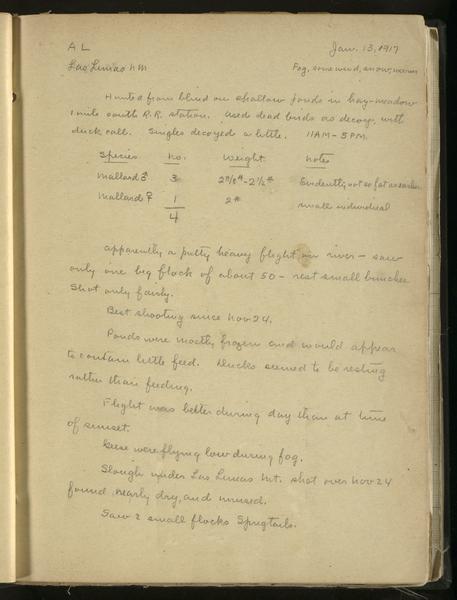 A L Jan. 13, 1917
Las Lunas N M Fog, some wind, snow, warm
Hunted from blind on shallow ponds in hay-meadow
1 mile south R.R. station. Used dead birds as decoys, with
duck call. Singles decoyed a little. 11 AM - 5 PM.
Species No. Weight Notes
Mallard ♂ 3 2 1/8# - 2 1/2# Evidently not so fat as earlier
Mallard ♀ 1 2# small individual
4
Apparently a pretty heavy flight on river - saw
only one big flock of about 50 - rest small bunches
Shot only fairly.
Best shooting since Nov 24.
Ponds were mostly frozen and would appear
to contain little feed. Ducks seemed to be resting
rather than feeding.
Flight was better during day than at time
of sunset.
Geese were flying low during fog.
Slough under Los Lunas Mt. shot over Nov 24
found nearly dry, and unused.
Saw 2 small flocks Sprigtails.